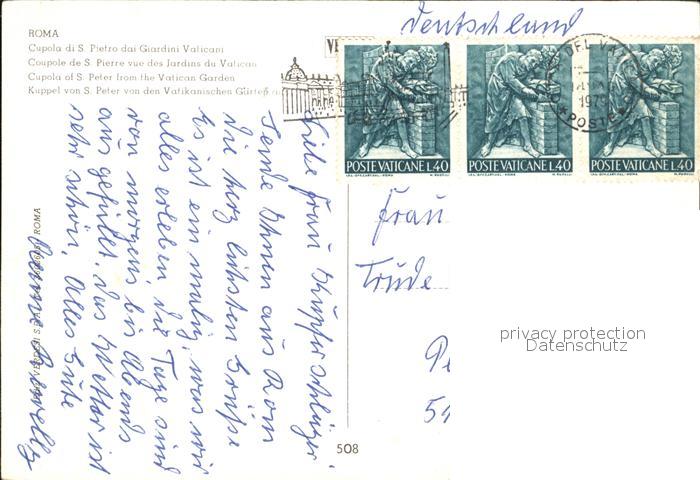 ROMA
Cupola di S. Pietro dai Giardini Vaticani
Coupole de S. Pierre vue des Jardins du Vatican
Cupola of S. Peter from the Vatican Garden
Kuppel von S. Peter von den Vatikanischen Gärten
Deutschland
POSTE VATICANE L.40
POSTE VATICANE L.40
POSTE VATICANE L.40
POSTE
Liebe Frau Kupferschläger.
Sende Ihnen aus Rom
die herzlichsten Grüße
Es ist einmalig, was wir
alles erleben. die Tage sind
von morgens bis Abends
ausgefüllt. das Wetter ist
sehr schön, Alles Gute
Frau
Trude
privacy protection
Datenschutz
ROMA
508